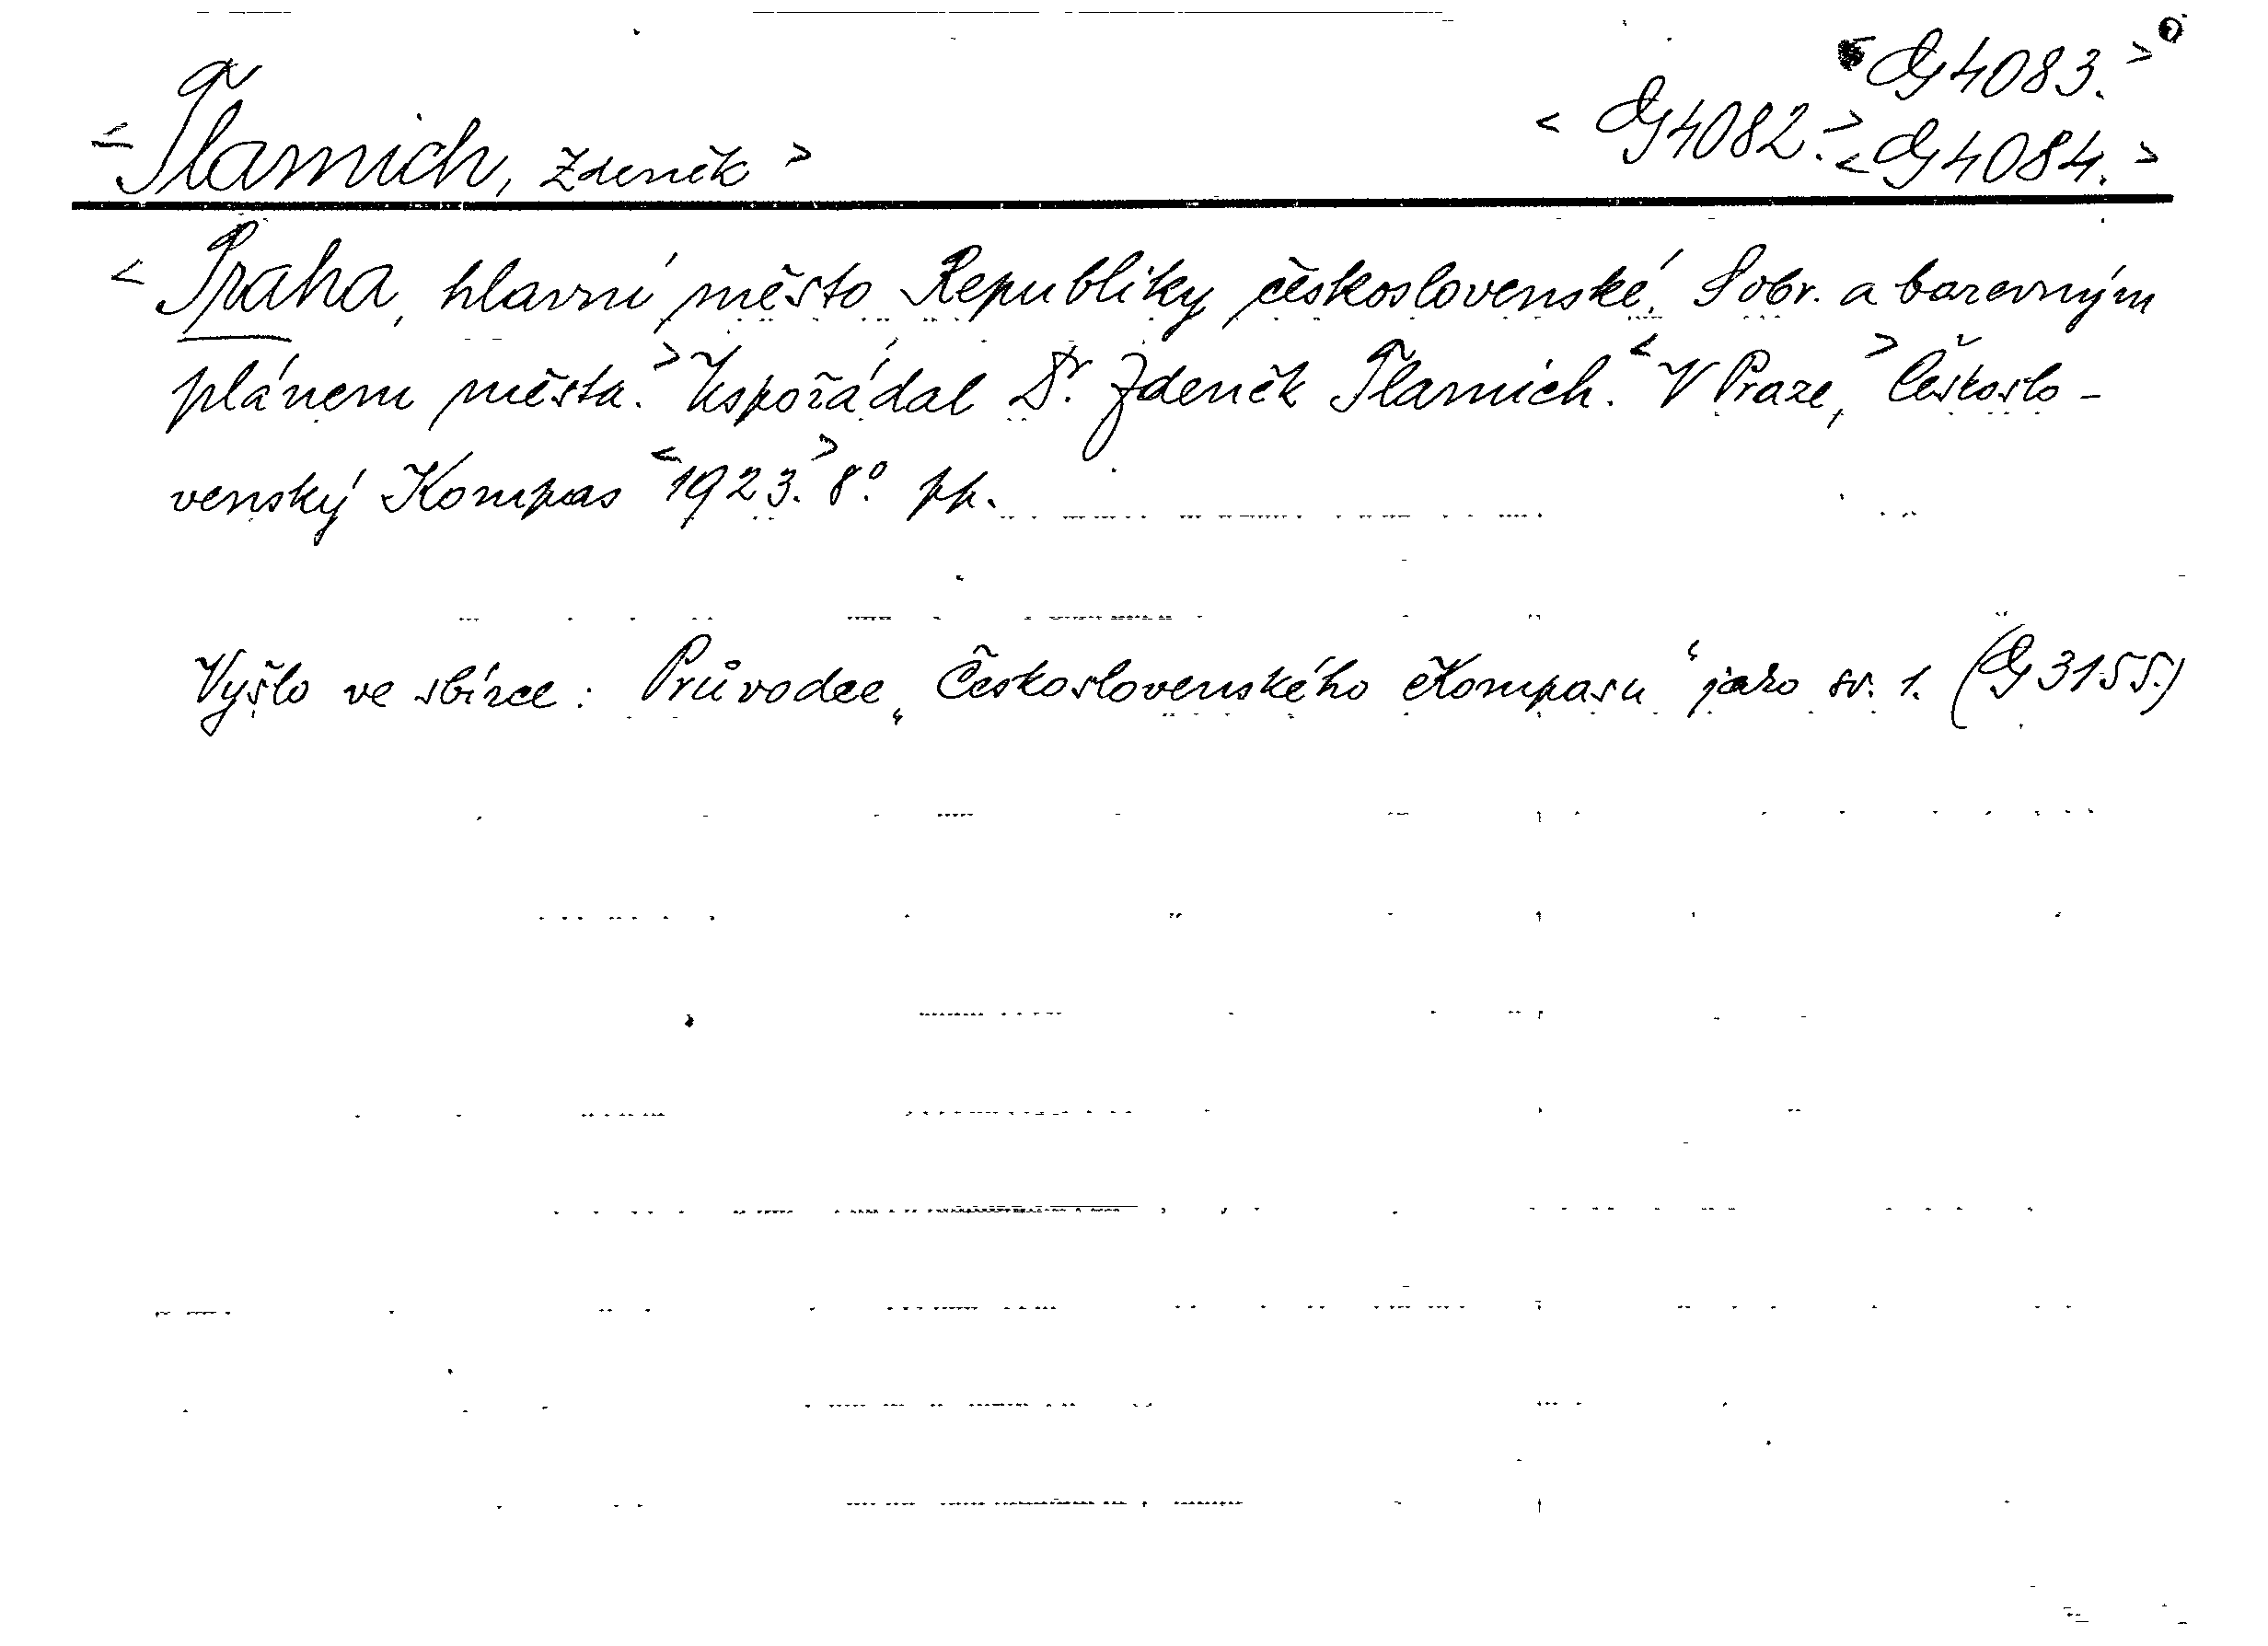 <G 4083.>
<G 4082.> <G 4084.>
<Tlamich, Zdeněk>
<Praha, hlavní město Republiky československé. S obr. a barevným
plánem města.> Uspořádal Dr. Zdeněk Tlamich. <V Praze,> Českoslo-
venský Kompas <1923.> 8° pp.
Vyšlo ve sbírce: Průvodce „Československého Kompasu“ jako sv. 1. (G 3155.)